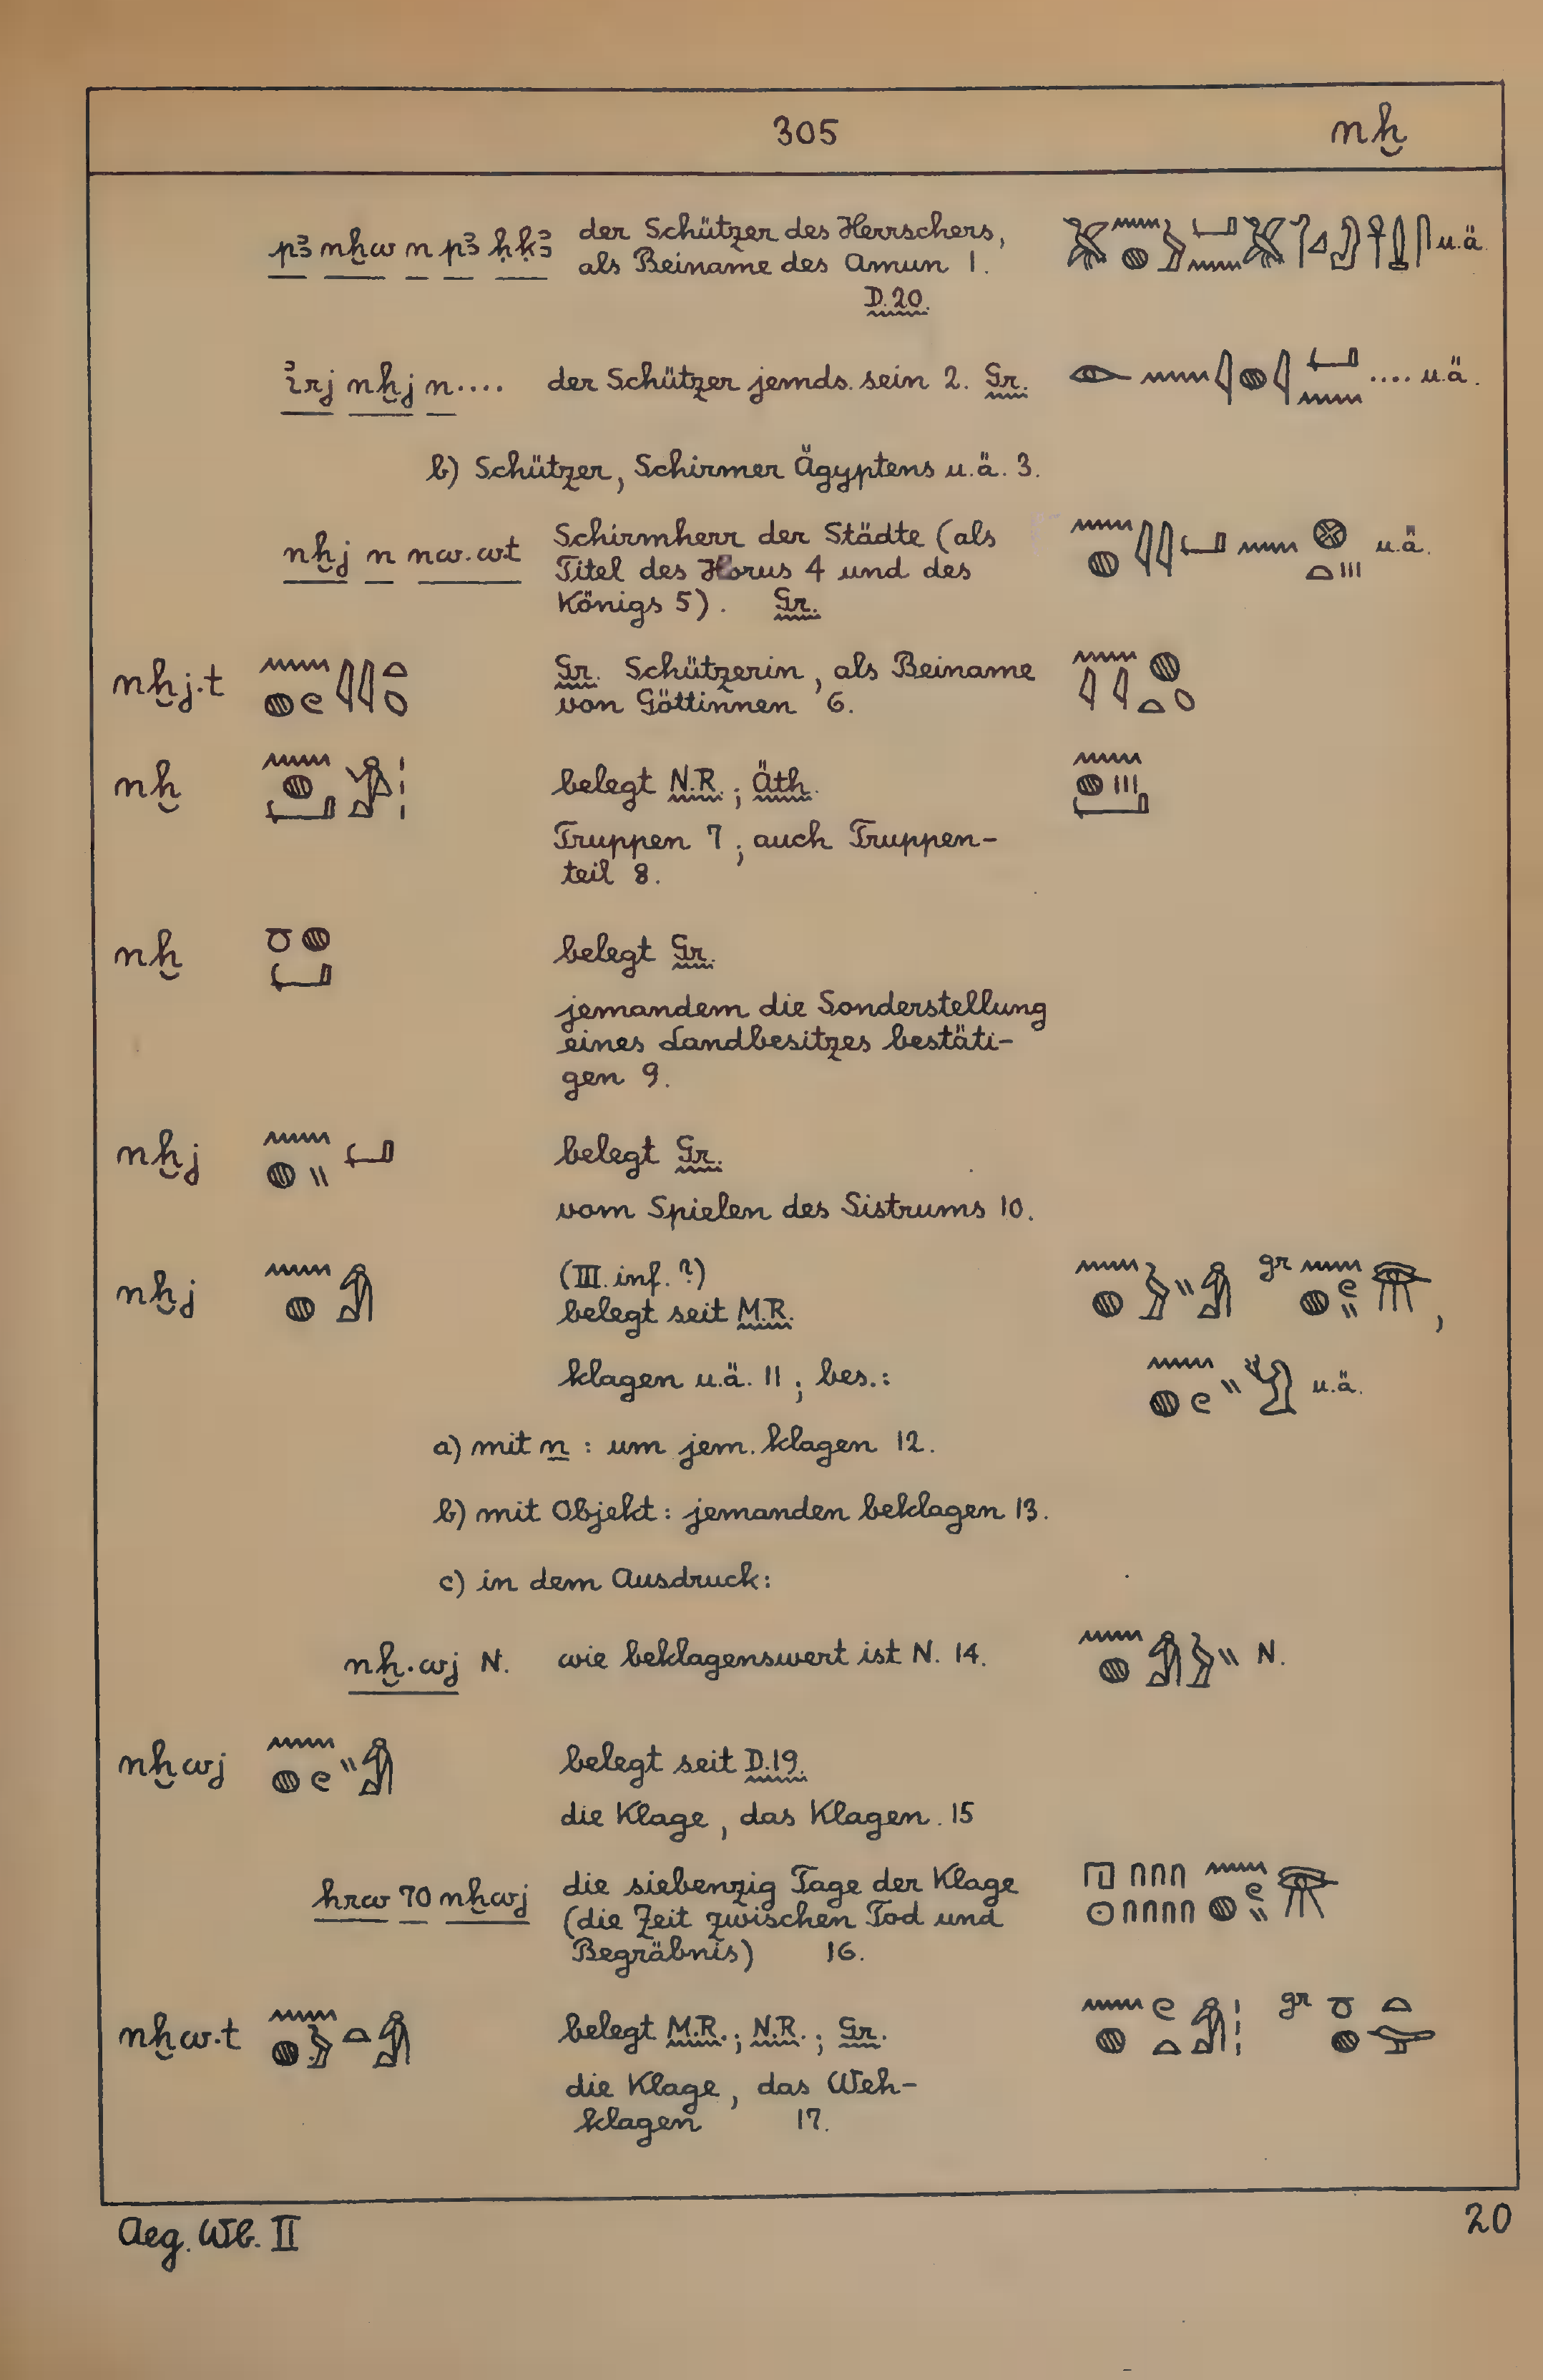 305 nḫ
pꜣ nḫw n pꜣ ḥḳꜣ der Schützer des Herrschers, u.ä.
als Beiname des Amun 1.
D.20.
ı͗rj nḫj n.... der Schützer jemds. sein 2. Gr. .... u.ä.
b) Schützer, Schirmer Ägyptens u.ä. 3.
nḫj n nw.wt Schirmherr der Städte (als u.ä.
Titel des Horus 4 und des
Königs 5). Gr.
nḫj.t Gr. Schützerin, als Beiname
von Göttinnen 6.
nḫ belegt N.R.; Äth.
Truppen 7; auch Truppen-
teil 8.
nḫ belegt Gr.
jemandem die Sonderstellung
eines Landbesitzes bestäti-
gen 9.
nḫj belegt Gr.
vom Spielen des Sistrums 10.
nḫj (III. inf. ?) gr ,
belegt seit M.R.
klagen u.ä. 11; bes.: u.ä.
a) mit n : um jem. klagen 12.
b) mit Objekt: jemanden beklagen 13.
c) in dem Ausdruck:
nḫ.wj N. wie beklagenswert ist N. 14. N.
nḫwj belegt seit D.19.
die Klage, das Klagen. 15
hrw 70 nḫwj die siebenzig Tage der Klage
(die Zeit zwischen Tod und
Begräbnis) 16.
nḫw.t belegt M.R.; N.R.; Gr. gr
die Klage, das Weh-
klagen 17.
Aeg. Wb. II 20